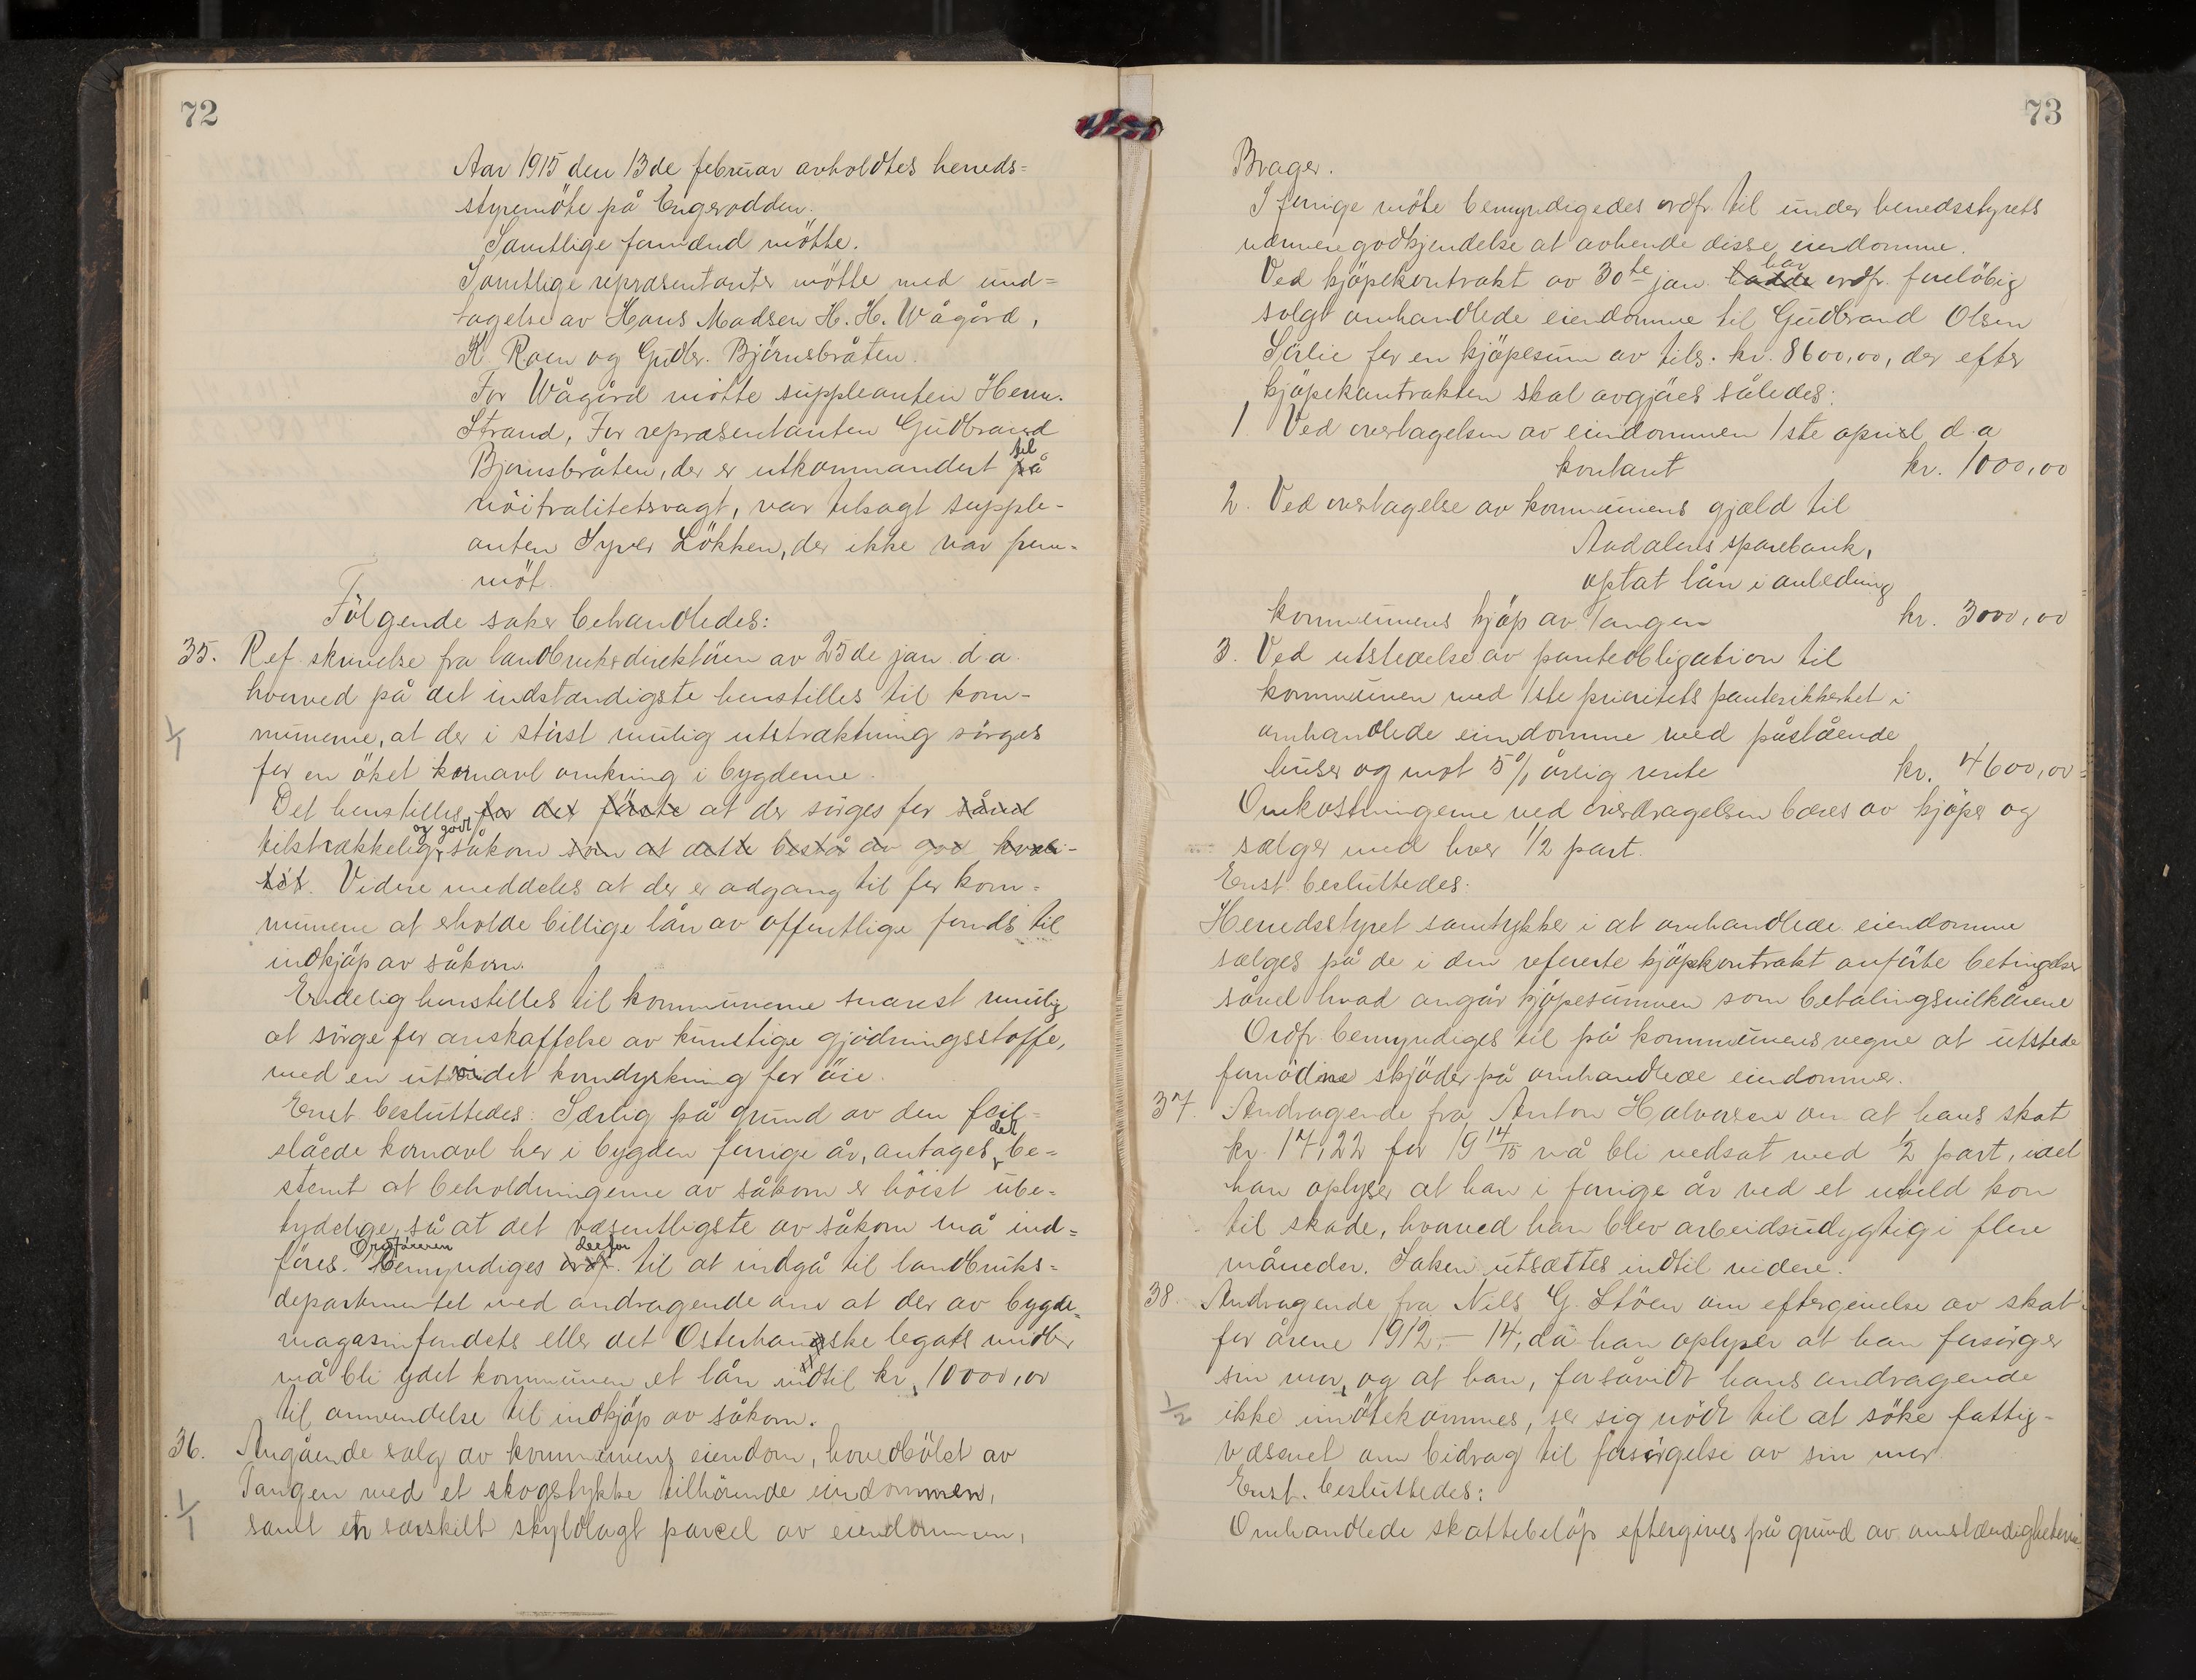 72
Aar 1915 den 13de februar avholdtes herreds=
styremöte på Engerodden.
Samtlige formænd mötte.
Samtlige repræsentanter mötte med und=
tagelse av Hans Madsen H. H. Wågård,
K. Roen og Gudbr. Björnsbråten.
For Wågård mötte suppleanten Herm.
Strand, For repræsentanten Gudbrand
Bjørnsbråten, der er utkommandert på til
nöitralitetsvagt, var tilsagt supple-
anten Syver Lökken, der ikke var frem-
möt.
Fölgende saker behandledes:
35. Ref. skrivelse fra landbruksdirektören av 25de jan. d.a.
hvorved på det indstændigste henstilles til kom-
1/1
munerne, at der i störst mulig utstrækning sörges
for en öket kornavl omkring i bygderne.
Det henstilles for det förste at der sörges for såvel
tilstrækkelig og godt såkorn som at dette bestå av god kvali-
tet. Videre meddeles at der er adgang til for kom=
munene at erholde billige lån av offentlige fonds til
indkjöp av såkorn.
Endelig henstilles til kommunerne snarest mulig
at sörge for anskaffelse av kunstige gjödningsstoffe,
med en utvidet korndyrkning for öie.
Enst. besluttedes: Særlig på grund av den feil=
slåede kornavl her i bygden forrige år, antages det be=
stemt at beholdningerne av såkorn er höist ube=
tydelige, så at det væsentligste av såkorn må ind=
föres. Ordföreren bemyndiges ordf. derfor til at indgå til landbruks=
departementet med andragende om at der av bygde=
magasinfondets eller det Osterhaugske legats midler
må bli ydet kommunen et lån indtil kr. 10000,00
til anvendelse til indkjöp av såkorn.
36. Angående salg av kommunens eiendom, hovedbölet av
Tangen med et skogstykke tilhörende eiendommen,
1/1
samt en særskilt skyldlagt parcel av eiendommen,
73
Brager.
I forrige möte bemyndigedes ordfr. til under herredsstyrets
nærmere godkjendelse at avhende disse eiendomme.
Ved kjöpekontrakt av 30te jan. hadde har ordfr. forelöbig
solgt omhandlede eiendomme til Gudbrand Olsen
Sörlie for en kjöpesum av tils. kr. 8600,00, der efter
kjöpekontrakten skal avgjöres således:
1. Ved overtagelsen av eiendommen 1ste april d.a
kontant kr. 1000,00
2. Ved overtagelse av kommunens gjæld til
Aadalens sparebank,
optat lån i anledning
kommunens kjöp av Tangen kr. 3000,00
3. Ved utstedelse av panteobligation til
kommunen med 1ste prioritets pantesikkerhet i
omhandlede eiendomme med påstående
huser og mot 5% årlig rente kr. 4600,00=
Omkostningerne ved overdragelsen bæres av kjöper og
sælger med hver 1/2 part.
Enst. besluttedes:
Herredsstyret samtykker i at omhandlede eiendomme
sælges på de i den refererte kjöpekontrakt anförte betingelser
såvel hvad angår kjöpesummen som betalingsvilkårene
Ordfr. bemyndiges til på kommunens vegne at utstede
fornödne skjöder på omhandlede eiendommer.
37. Andragende fra Anton Halvorsen om at hans skat
kr. 17,22 for 19 14/15 må bli nedsat med 1/2 part, idet
han oplyser at han i forrige år ved et uheld kom
til skade, hvorved han blev arbeidsudygtig i flere
måneder. Saken utsættes indtil videre.
38. Andragende fra Nils G. Stöen om eftergivelse av skat
for årene 1912, – 14, da han oplyser at han forsörger
sin mor, og at han, forsåvidt hans andragende
1/2
ikke imötekommes, ser sig nödt til at söke fattig-
væsenet om bidrag til forsörgelse av sin mor
Enst. besluttedes:
Omhandlede skattebelöp eftergives på grund av omstændigheterne.